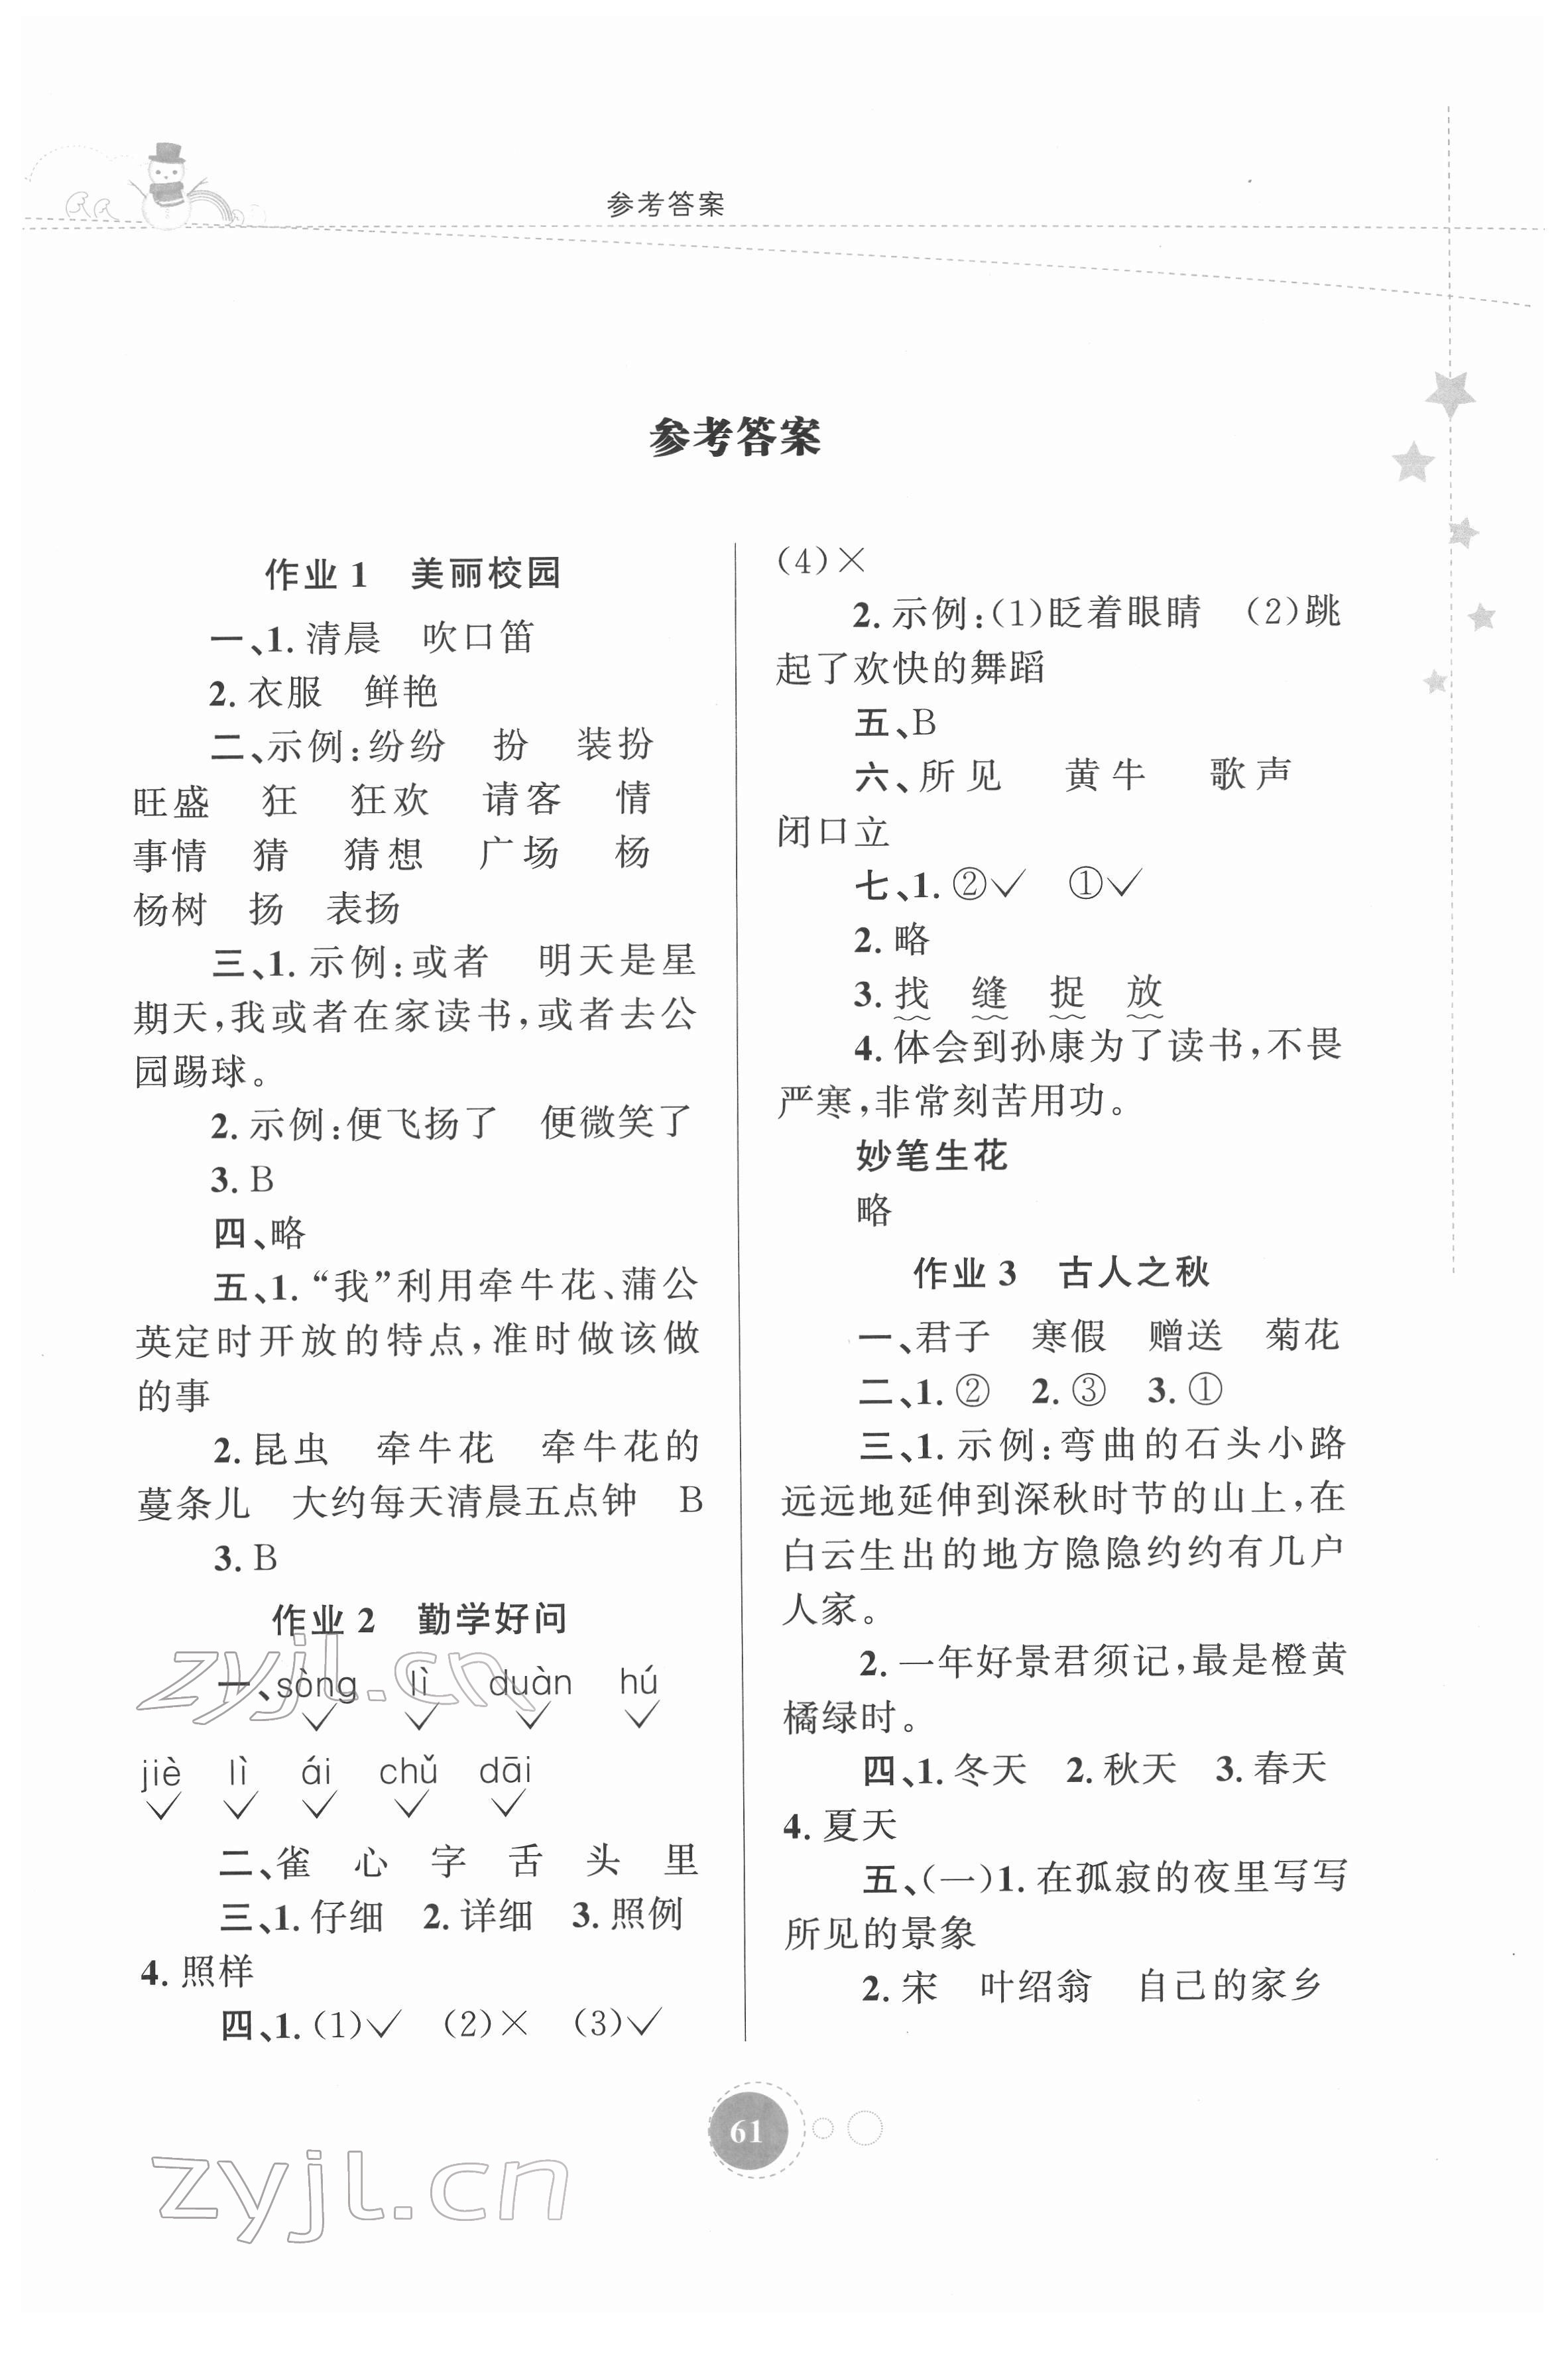 参考答案
参考答案
作业1 美丽校园
一、1. 清晨 吹口笛
2. 衣服 鲜艳
二、示例:纷纷 扮 装扮
旺盛 狂 狂欢 请客 情
事情 猜 猜想 广场 杨
杨树 扬 表扬
三、1. 示例:或者 明天是星
期天,我或者在家读书,或者去公
园踢球。
2. 示例:便飞扬了 便微笑了
3. B
四、略
五、1. “我”利用牵牛花、蒲公
英定时开放的特点,准时做该做
的事
2. 昆虫 牵牛花 牵牛花的
蔓条儿 大约每天清晨五点钟 B
3. B
作业2 勤学好问
一、sòng lì duàn hú
✓ ✓ ✓ ✓
jiè lì ái chǔ dāi
✓ ✓ ✓ ✓ ✓
二、雀 心 字 舌 头 里
三、1. 仔细 2. 详细 3. 照例
4. 照样
四、1. (1)✓ (2)× (3)✓
(4)×
2. 示例:(1)眨着眼睛 (2)跳
起了欢快的舞蹈
五、B
六、所见 黄牛 歌声
闭口立
七、1. ②✓ ①✓
2. 略
3. 找 缝 捉 放
4. 体会到孙康为了读书,不畏
严寒,非常刻苦用功。
妙笔生花
略
作业3 古人之秋
一、君子 寒假 赠送 菊花
二、1. ② 2. ③ 3. ①
三、1. 示例:弯曲的石头小路
远远地延伸到深秋时节的山上,在
白云生出的地方隐隐约约有几户
人家。
2. 一年好景君须记,最是橙黄
橘绿时。
四、1. 冬天 2. 秋天 3. 春天
4. 夏天
五、(一)1. 在孤寂的夜里写写
所见的景象
2. 宋 叶绍翁 自己的家乡
61
zyjl.cn
zyjl.cn